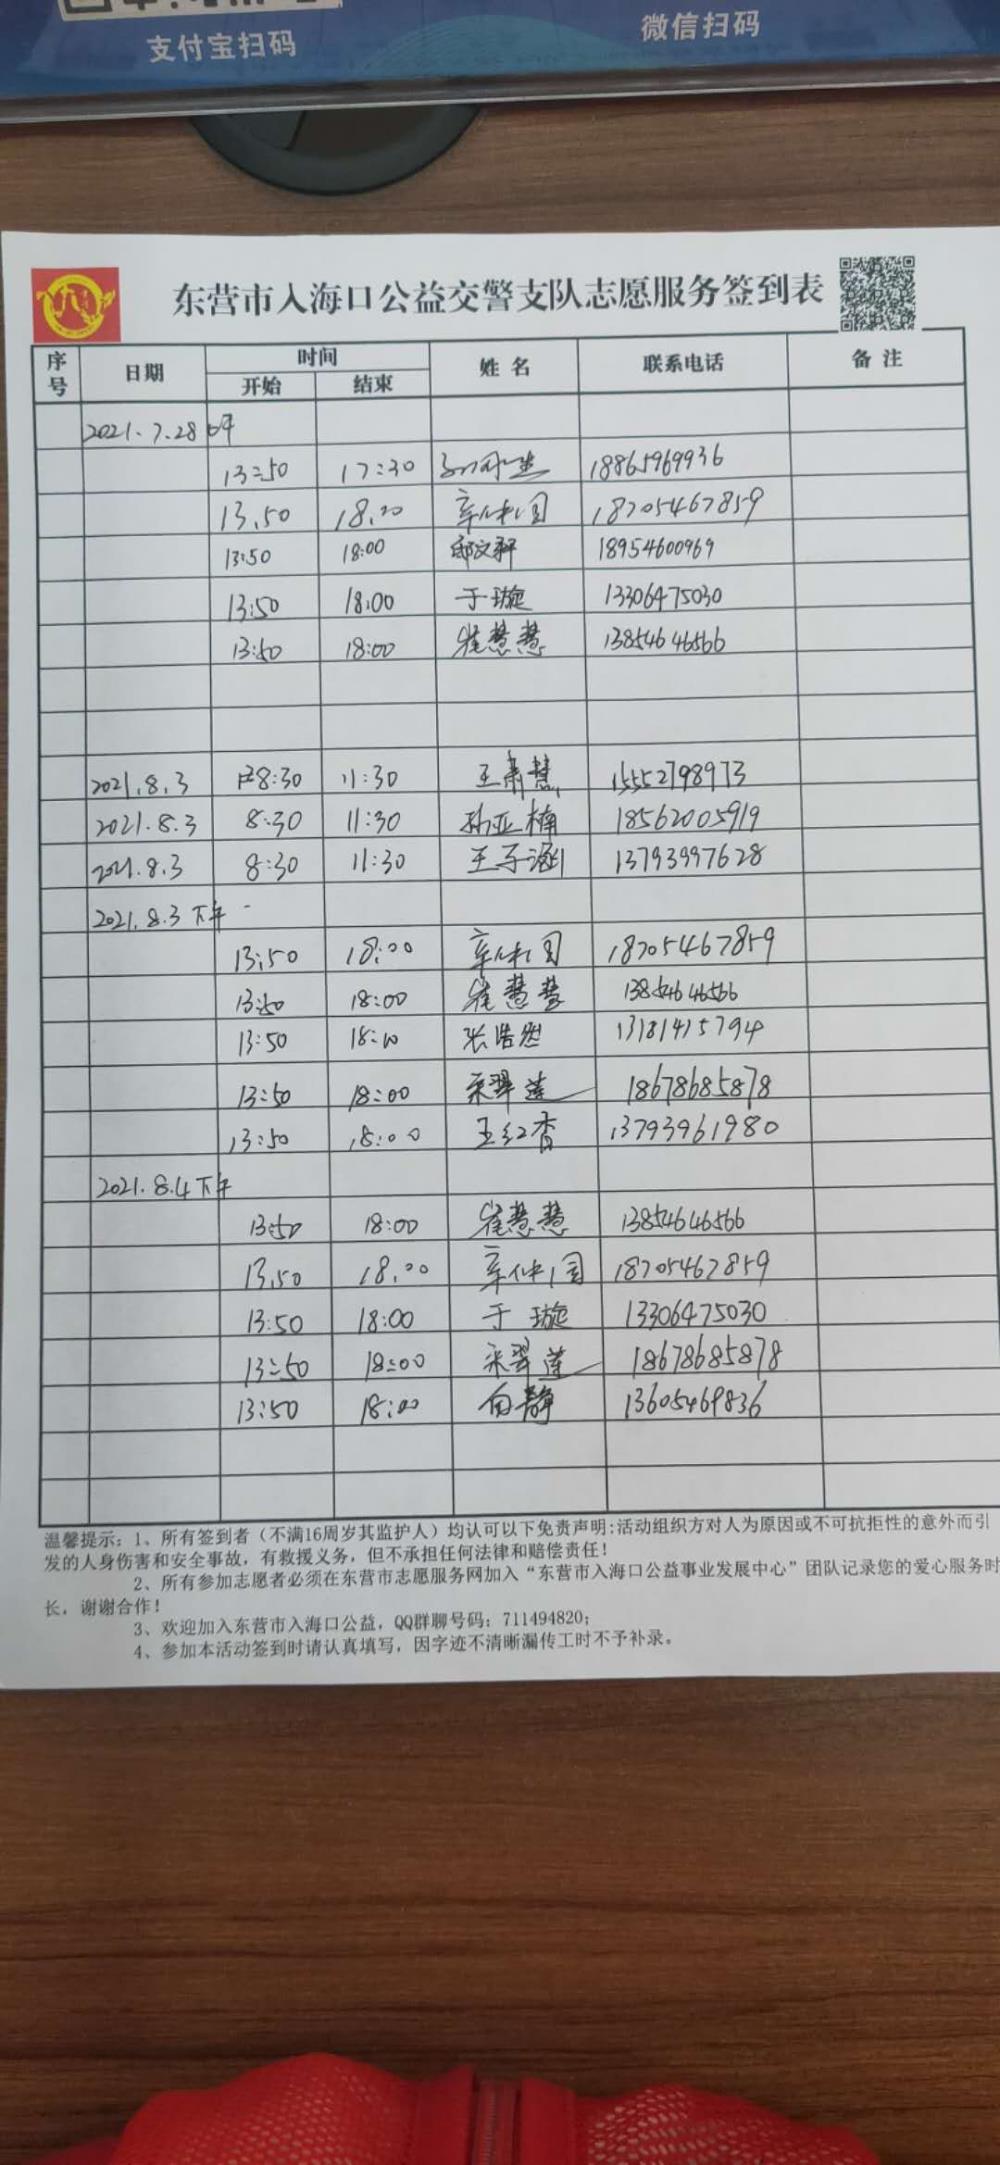 支付宝扫码
微信扫码
东营市入海口公益交警支队志愿服务签到表
序号 日期 时间 姓名 联系电话 备注
开始 结束
2021.7.28
13:50 17:30 18865969936
13.50 18.00 辛仲园 18705467859
13:50 18:00 邸文轩 18954600969
13:50 18:00 于璇 13306475030
13:50 18:00 崔慧慧 13854646566
2021.8.3 8:30 11:30 王肃慧 15552798973
2021.8.3 8:30 11:30 孙亚楠 18562005919
2021.8.3 8:30 11:30 王子涵 13793997628
2021.8.3 下午
13:50 18:00 辛仲园 18705467859
13:50 18:00 崔慧慧 13854646566
13:50 18:00 张浩然 13181415794
13:50 18:00 翠莲 18678685878
13:50 18:00 王红香 13793961980
2021.8.4 下午
13:50 18:00 崔慧慧 13854646566
13.50 18.00 辛仲园 18705467859
13:50 18:00 于璇 13306475030
13:50 18:00 翠莲 18678685878
13:50 18:00 白静 13605469836
温馨提示：1、所有签到者（不满16周岁其监护人）均认可以下免责声明:活动组织方对人为原因或不可抗拒性的意外而引
发的人身伤害和安全事故，有救援义务，但不承担任何法律和赔偿责任！
2、所有参加志愿者必须在东营市志愿服务网加入“东营市入海口公益事业发展中心”团队记录您的爱心服务时
长，谢谢合作！
3、欢迎加入东营市入海口公益，QQ群聊号码：711494820；
4、参加本活动签到时请认真填写，因字迹不清晰漏传工时不予补录。